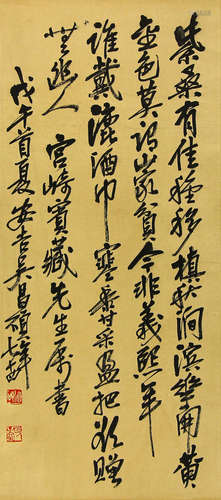 柴桑有佳種移植秋澗濱華開黃
金色莫山家貧今非義熙年
誰戴漉酒巾寒香采盈把欲贈
無幽人 宮崎寶藏先生屬書
戊午首夏安吉吳昌碩年七十五